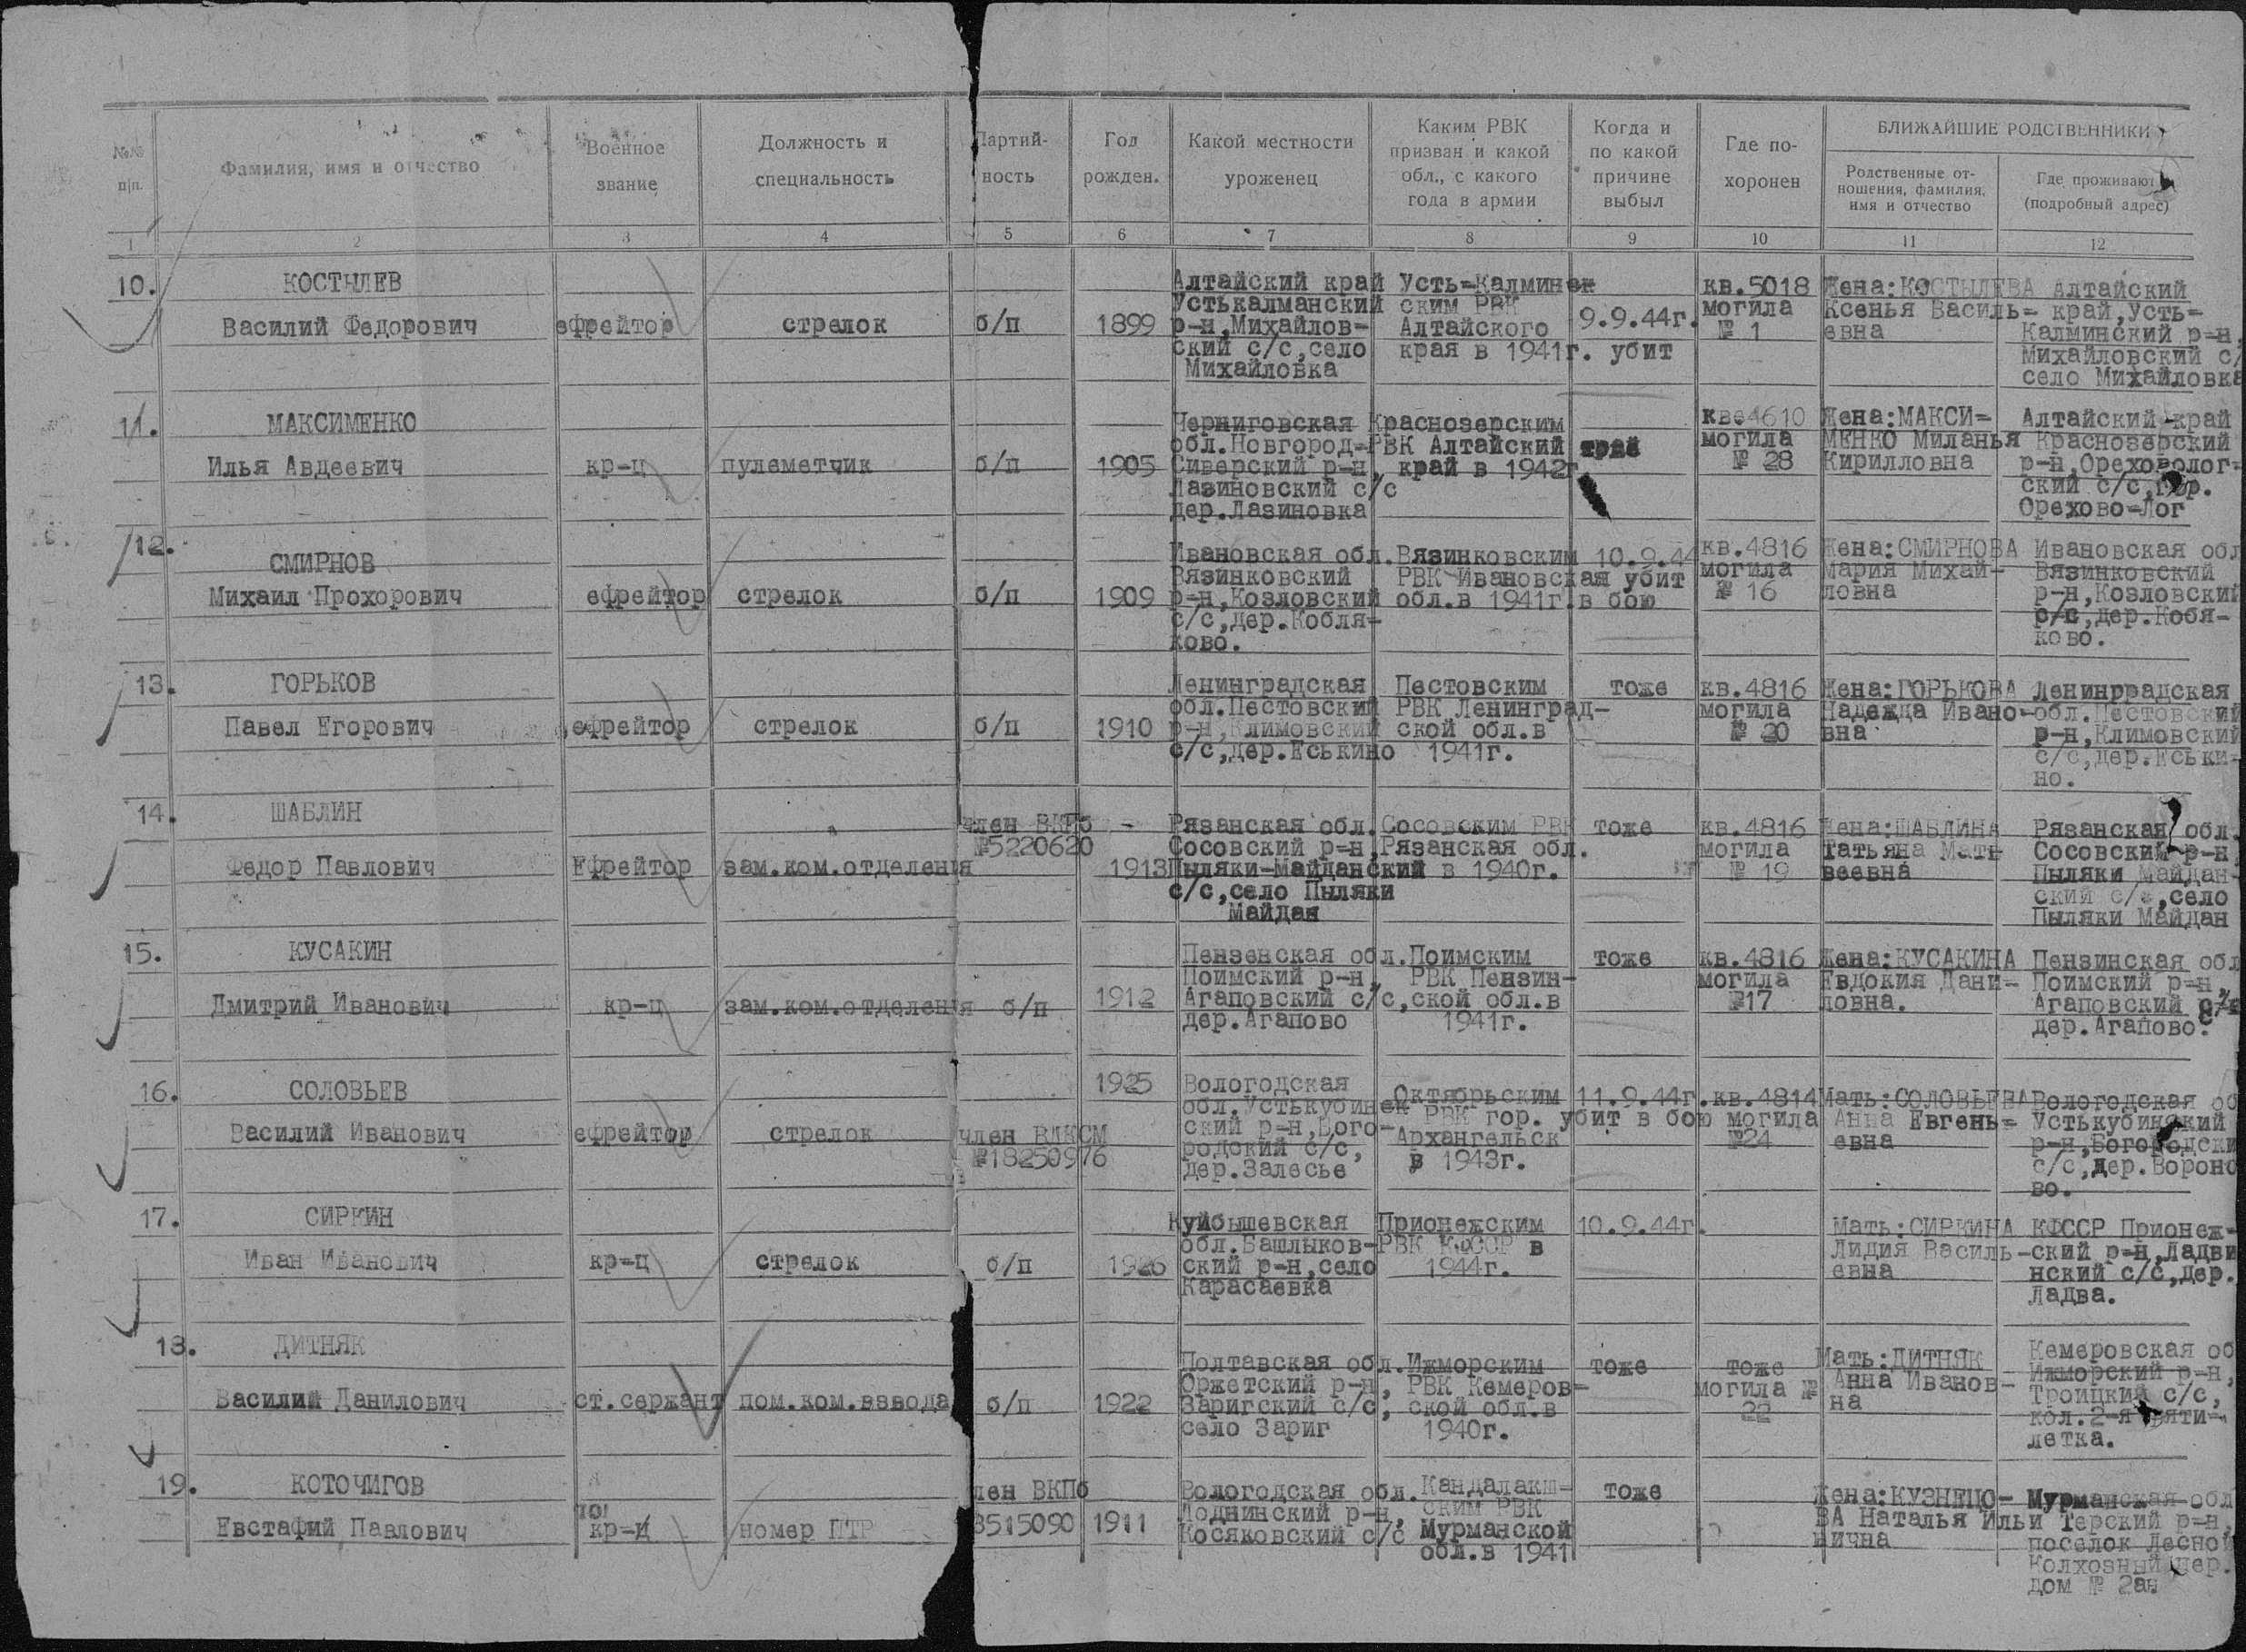 №№ п/п.
Фамилия, имя и отчество
Военное звание
Должность и специальность
Партий-ность
Год рожден.
Какой местности уроженец
Каким РВК призван и какой обл., с какого года в армии
Когда и по какой причине выбыл
Где по-хоронен
БЛИЖАЙШИЕ РОДСТВЕННИКИ
Родственные от-ношения, фамилия, имя и отчество
Где проживают (подробный адрес)
1 2 3 4 5 6 7 8 9 10 11 12
10. КОСТЫЛЕВ
Василий Федорович
ефрейтор
стрелок
б/п
1899
Алтайский край
Устькалманский
р-н,Михайлов-
ский с/с,село
Михайловка
Усть-Калмин
ским РВК
Алтайского
края в 1941г.
9.9.44г.
убит
кв.5018
могила
№ 1
Жена:КОСТЫЛЕВА
Ксенья Василь-
евна
Алтайский
край,Усть-
Калминский р-н,
Михайловский с/
село Михайловка
11. МАКСИМЕНКО
Илья Авдеевич
кр-ц
пулеметчик
б/п
1905
Черниговская
обл.Новгород-
Сиверский р-н,
Лазиновский с/с
дер.Лазиновка
Краснозерским
РВК Алтайский
край в 1942г.
кве4610
могила
№ 28
Жена:МАКСИ-
МЕНКО Миланья
Кирилловна
Алтайский край
Краснозерский
р-н,Ореховолог-
ский с/с,
Орехово-Лог
12.
СМИРНОВ
Михаил Прохорович
ефрейтор
стрелок
б/п
1909
Ивановская обл.
Вязинковский
р-н,Козловский
с/с,дер.Кобля-
ково.
Вязинковским
РВК Ивановская
обл.в 1941г.
10.9.44
убит
в бою
кв.4816
могила
№ 16
Жена:СМИРНОВА
Мария Михай-
ловна
Ивановская обл
Вязинковский
р-н,Козловский
с/с,дер.Кобя-
ково.
13. ГОРЬКОВ
Павел Егорович
ефрейтор
стрелок
б/п
1910
Ленинградская
обл.Пестовский
р-н,Климовский
с/с,дер.Еськино
Пестовским
РВК Ленинград-
ской обл.в
1941г.
тоже
кв.4816
могила
№ 20
Жена:ГОРЬКОВА
Надежда Ивано-
вна
Ленинррадская
обл.Пестовский
р-н,Климовский
с/с,дер.Еськи-
но.
14. ШАБЛИН
Федор Павлович
Ефрейтор
зам.ком.отделения
член ВКПб
№5220620
1913
Рязанская обл.
Сосовский р-н,
Пыляки-Майданский
с/с,село Пыляки
Майдан
Сосовским РВК
Рязанская обл.
в 1940г.
тоже
кв.4816
могила
№ 19
Жена:ШАБЛИНА
Татьяна Мат-
веевна
Рязанская обл.
Сосовский р-н,
Пыляки Майдан-
ский с/с,село
Пыляки Майдан
15. КУСАКИН
Дмитрий Иванович
кр-ц
зам.ком.отделения
б/п
1912
Пензенская обл.
Поимский р-н,
Агаповский с/с,
дер.Агапово
Поимским
РВК Пензин-
ской обл.в
1941г.
тоже
кв.4816
могила
№17
Жена:КУСАКИНА
Евдокия Дани-
ловна.
Пензинская обл
Поимский р-н,
Агаповский с/с
дер.Агапово.
16. СОЛОВЬЕВ
Василий Иванович
ефрейтор
стрелок
член ВЛКСМ
№18250976
1925
Вологодская
обл.Устькубин
ский р-н,Бого-
родский с/с,
дер.Залесье
Октябрьским
РВК гор.
Архангельск
в 1943г.
11.9.44г.
убит в бою
кв.4814
могила
№24
Мать:СОЛОВЬЕВА
Анна Евгень-
евна
Вологодская об
Устькубинский
р-н,Богородски
с/с,дер.Вороно
во.
17. СИРКИН
Иван Иванович
кр-ц
стрелок
б/п
1926
Куйбышевская
обл.Башлыков-
ский р-н,село
Карасаевка
Прионежским
РВК КФССР в
1944г.
10.9.44г.
Мать:СИРКИНА
Лидия Василь-
евна
КФССР Прионеж-
ский р-н,Ладви
нский с/с,дер.
Ладва.
18. ДИТНЯК
Василий Данилович
ст.сержант
пом.ком.взвода
б/п
1922
Полтавская обл.
Оржетский р-н,
Заригский с/с,
село Зариг
Ижморским
РВК Кемеров-
ской обл.в
1940г.
тоже
тоже
могила №
22
Мать:ДИТНЯК
Анна Иванов-
на
Кемеровская об
Ижморский р-н,
Троицкий с/с,
кол.2-я пяти-
летка.
19. КОТОЧИГОВ
Евстафий Павлович
кр-ц
номер ПТР
лен ВКПб
3515090
1911
Вологодская обл.
Лоднинский р-н,
Косяковский с/с
Кандалакш-
ским РВК
Мурманской
обл.в 1941
тоже
Жена:КУЗНЕЦО-
ВА Наталья Ильи
нична
Мурманская обл
Терский р-н,
поселок Лесной
Колхозный пер.
дом № 2ан